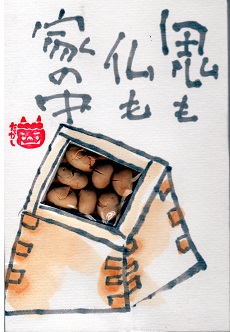 風も
仏も
家の中